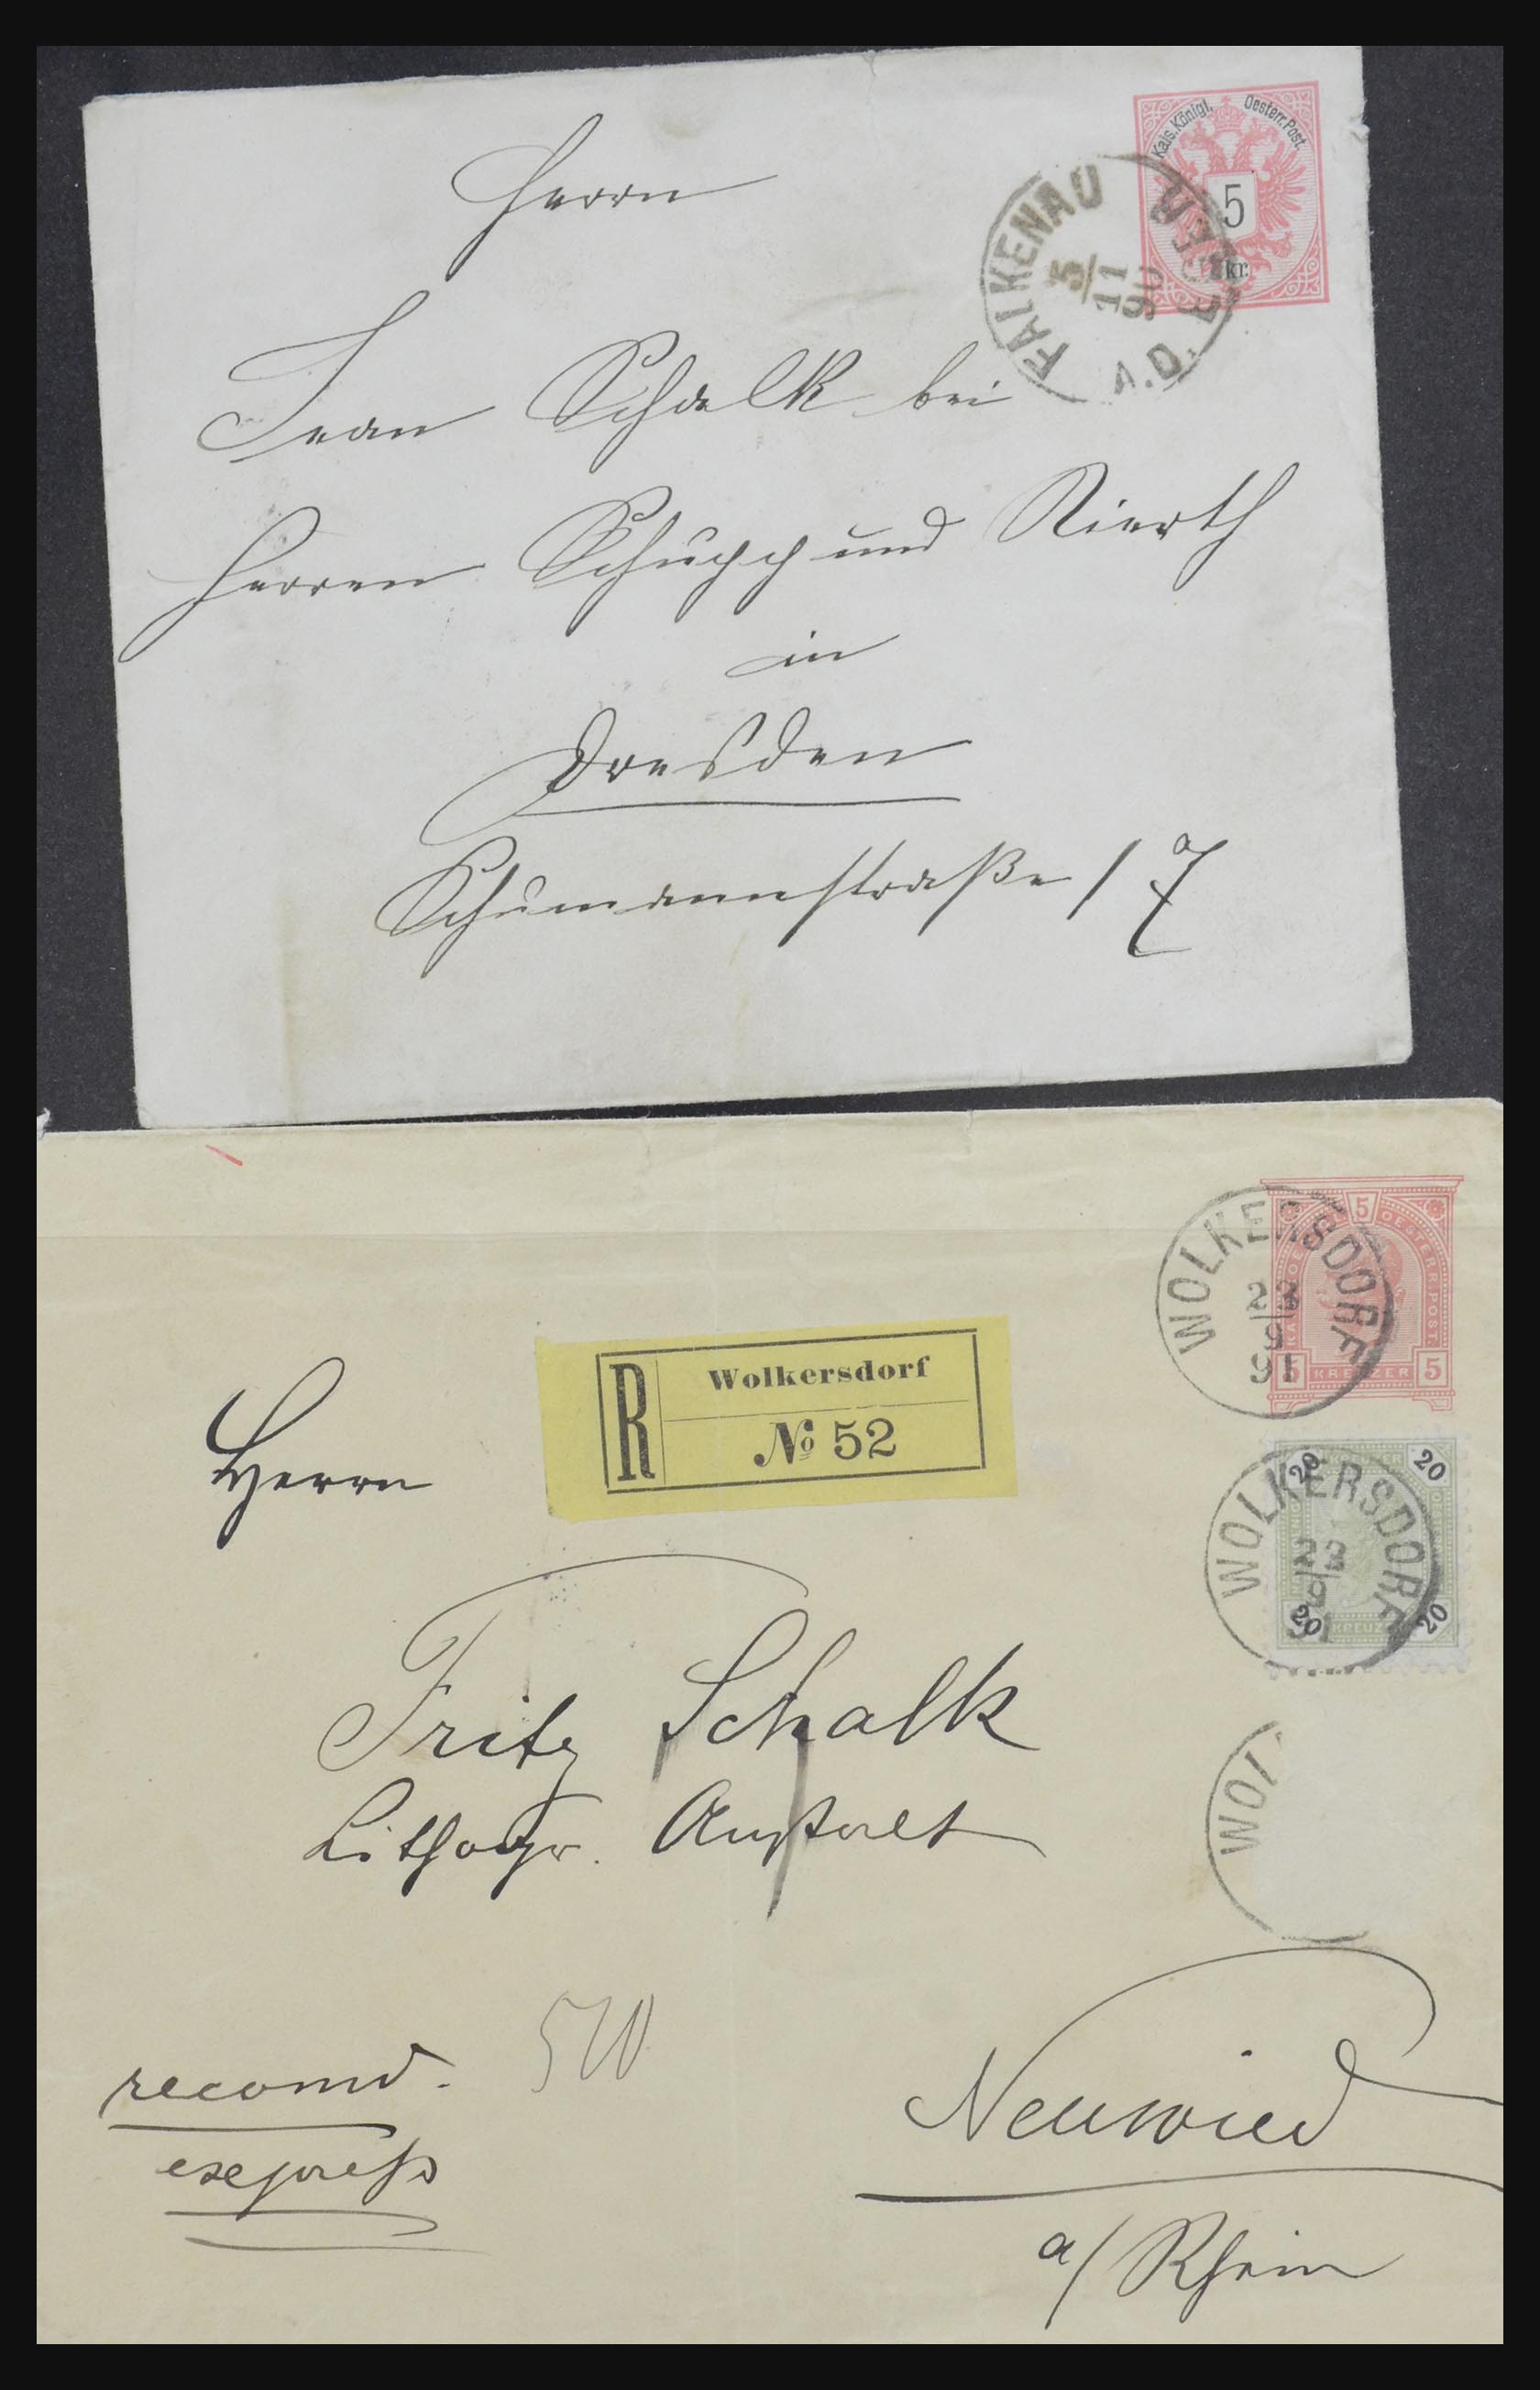 Kais. Königl. Oesterr. Post.
5
kr.
FALKENAU A.D. EGER
5/11
90
Herrn
Jean Schalk bei
Herren Schupp und Nierth
in
Dresden
Schumannstraße 17
WOLKERSDORF
23/9
91
5
OESTERR. POST.
5 KREUZER 5
R
Wolkersdorf
No 52
Herrn
20 20
WOLKERSDORF
23/9
91
20 20
Fritz Schalk
Lithogr. Anstalt
WOL
recomd.
express
Neuwied
a/Rhein